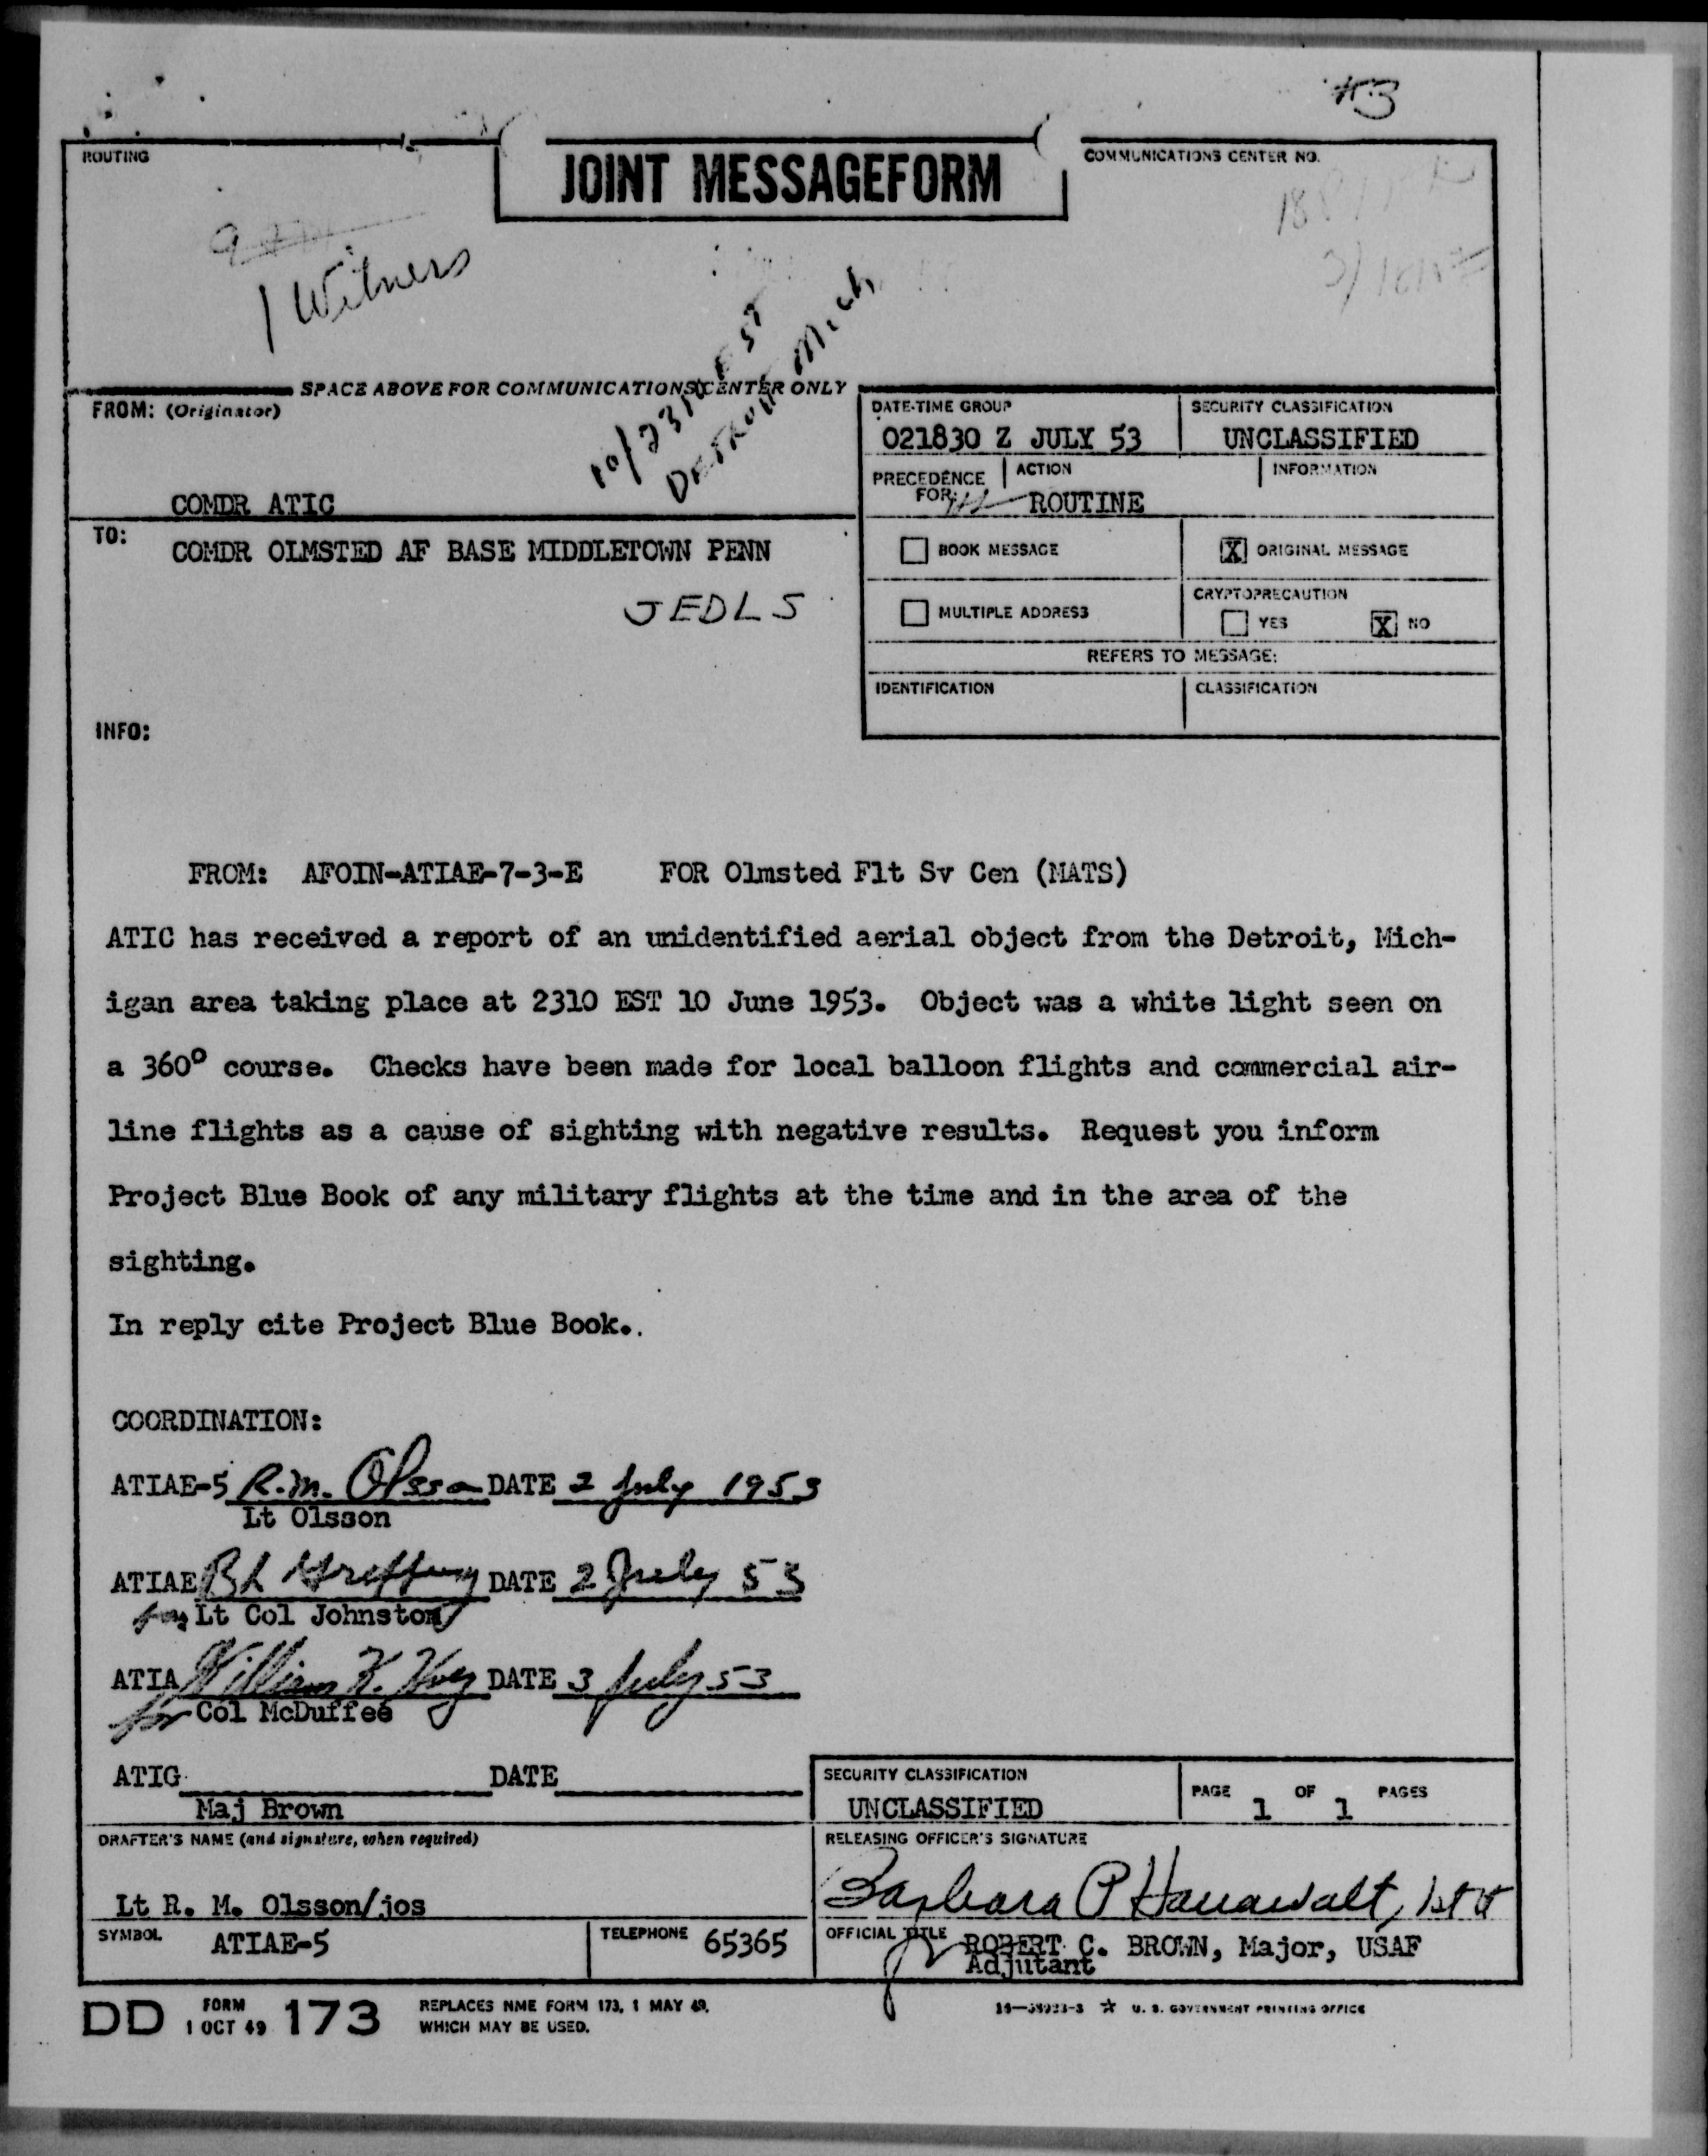 #3
ROUTING
JOINT MESSAGEFORM
COMMUNICATIONS CENTER NO.
1 Witness
10/2310 EST
Detroit Mich
SPACE ABOVE FOR COMMUNICATIONS CENTER ONLY
FROM: (Originator)
COMDR ATIC
DATE-TIME GROUP
021830 Z JULY 53
SECURITY CLASSIFICATION
UNCLASSIFIED
PRECEDENCE FOR:
ACTION
ROUTINE
INFORMATION
TO:
COMDR OLMSTED AF BASE MIDDLETOWN PENN
JEDLS
BOOK MESSAGE
X ORIGINAL MESSAGE
MULTIPLE ADDRESS
CRYPTOPRECAUTION
YES X NO
REFERS TO MESSAGE:
IDENTIFICATION
CLASSIFICATION
INFO:
FROM: AFOIN-ATIAE-7-3-E FOR Olmsted Flt Sv Cen (MATS)
ATIC has received a report of an unidentified aerial object from the Detroit, Mich-
igan area taking place at 2310 EST 10 June 1953. Object was a white light seen on
a 360° course. Checks have been made for local balloon flights and commercial air-
line flights as a cause of sighting with negative results. Request you inform
Project Blue Book of any military flights at the time and in the area of the
sighting.
In reply cite Project Blue Book..
COORDINATION:
ATIAE-5 R.M. Olsson DATE 2 July 1953
Lt Olsson
ATIAE DATE 2 July 53
for Lt Col Johnston
ATIA William K. DATE 3 July 53
for Col McDuffee
ATIG DATE
Maj Brown
SECURITY CLASSIFICATION
UNCLASSIFIED
PAGE 1 OF 1 PAGES
DRAFTER'S NAME (and signature, when required)
Lt R. M. Olsson/jos
RELEASING OFFICER'S SIGNATURE
Barbara P Hanawalt, 1st Lt
SYMBOL
ATIAE-5
TELEPHONE 65365
OFFICIAL TITLE
for ROBERT C. BROWN, Major, USAF
Adjutant
DD FORM 1 OCT 49 173
REPLACES NME FORM 173, 1 MAY 49,
WHICH MAY BE USED.
☆ U. S. GOVERNMENT PRINTING OFFICE